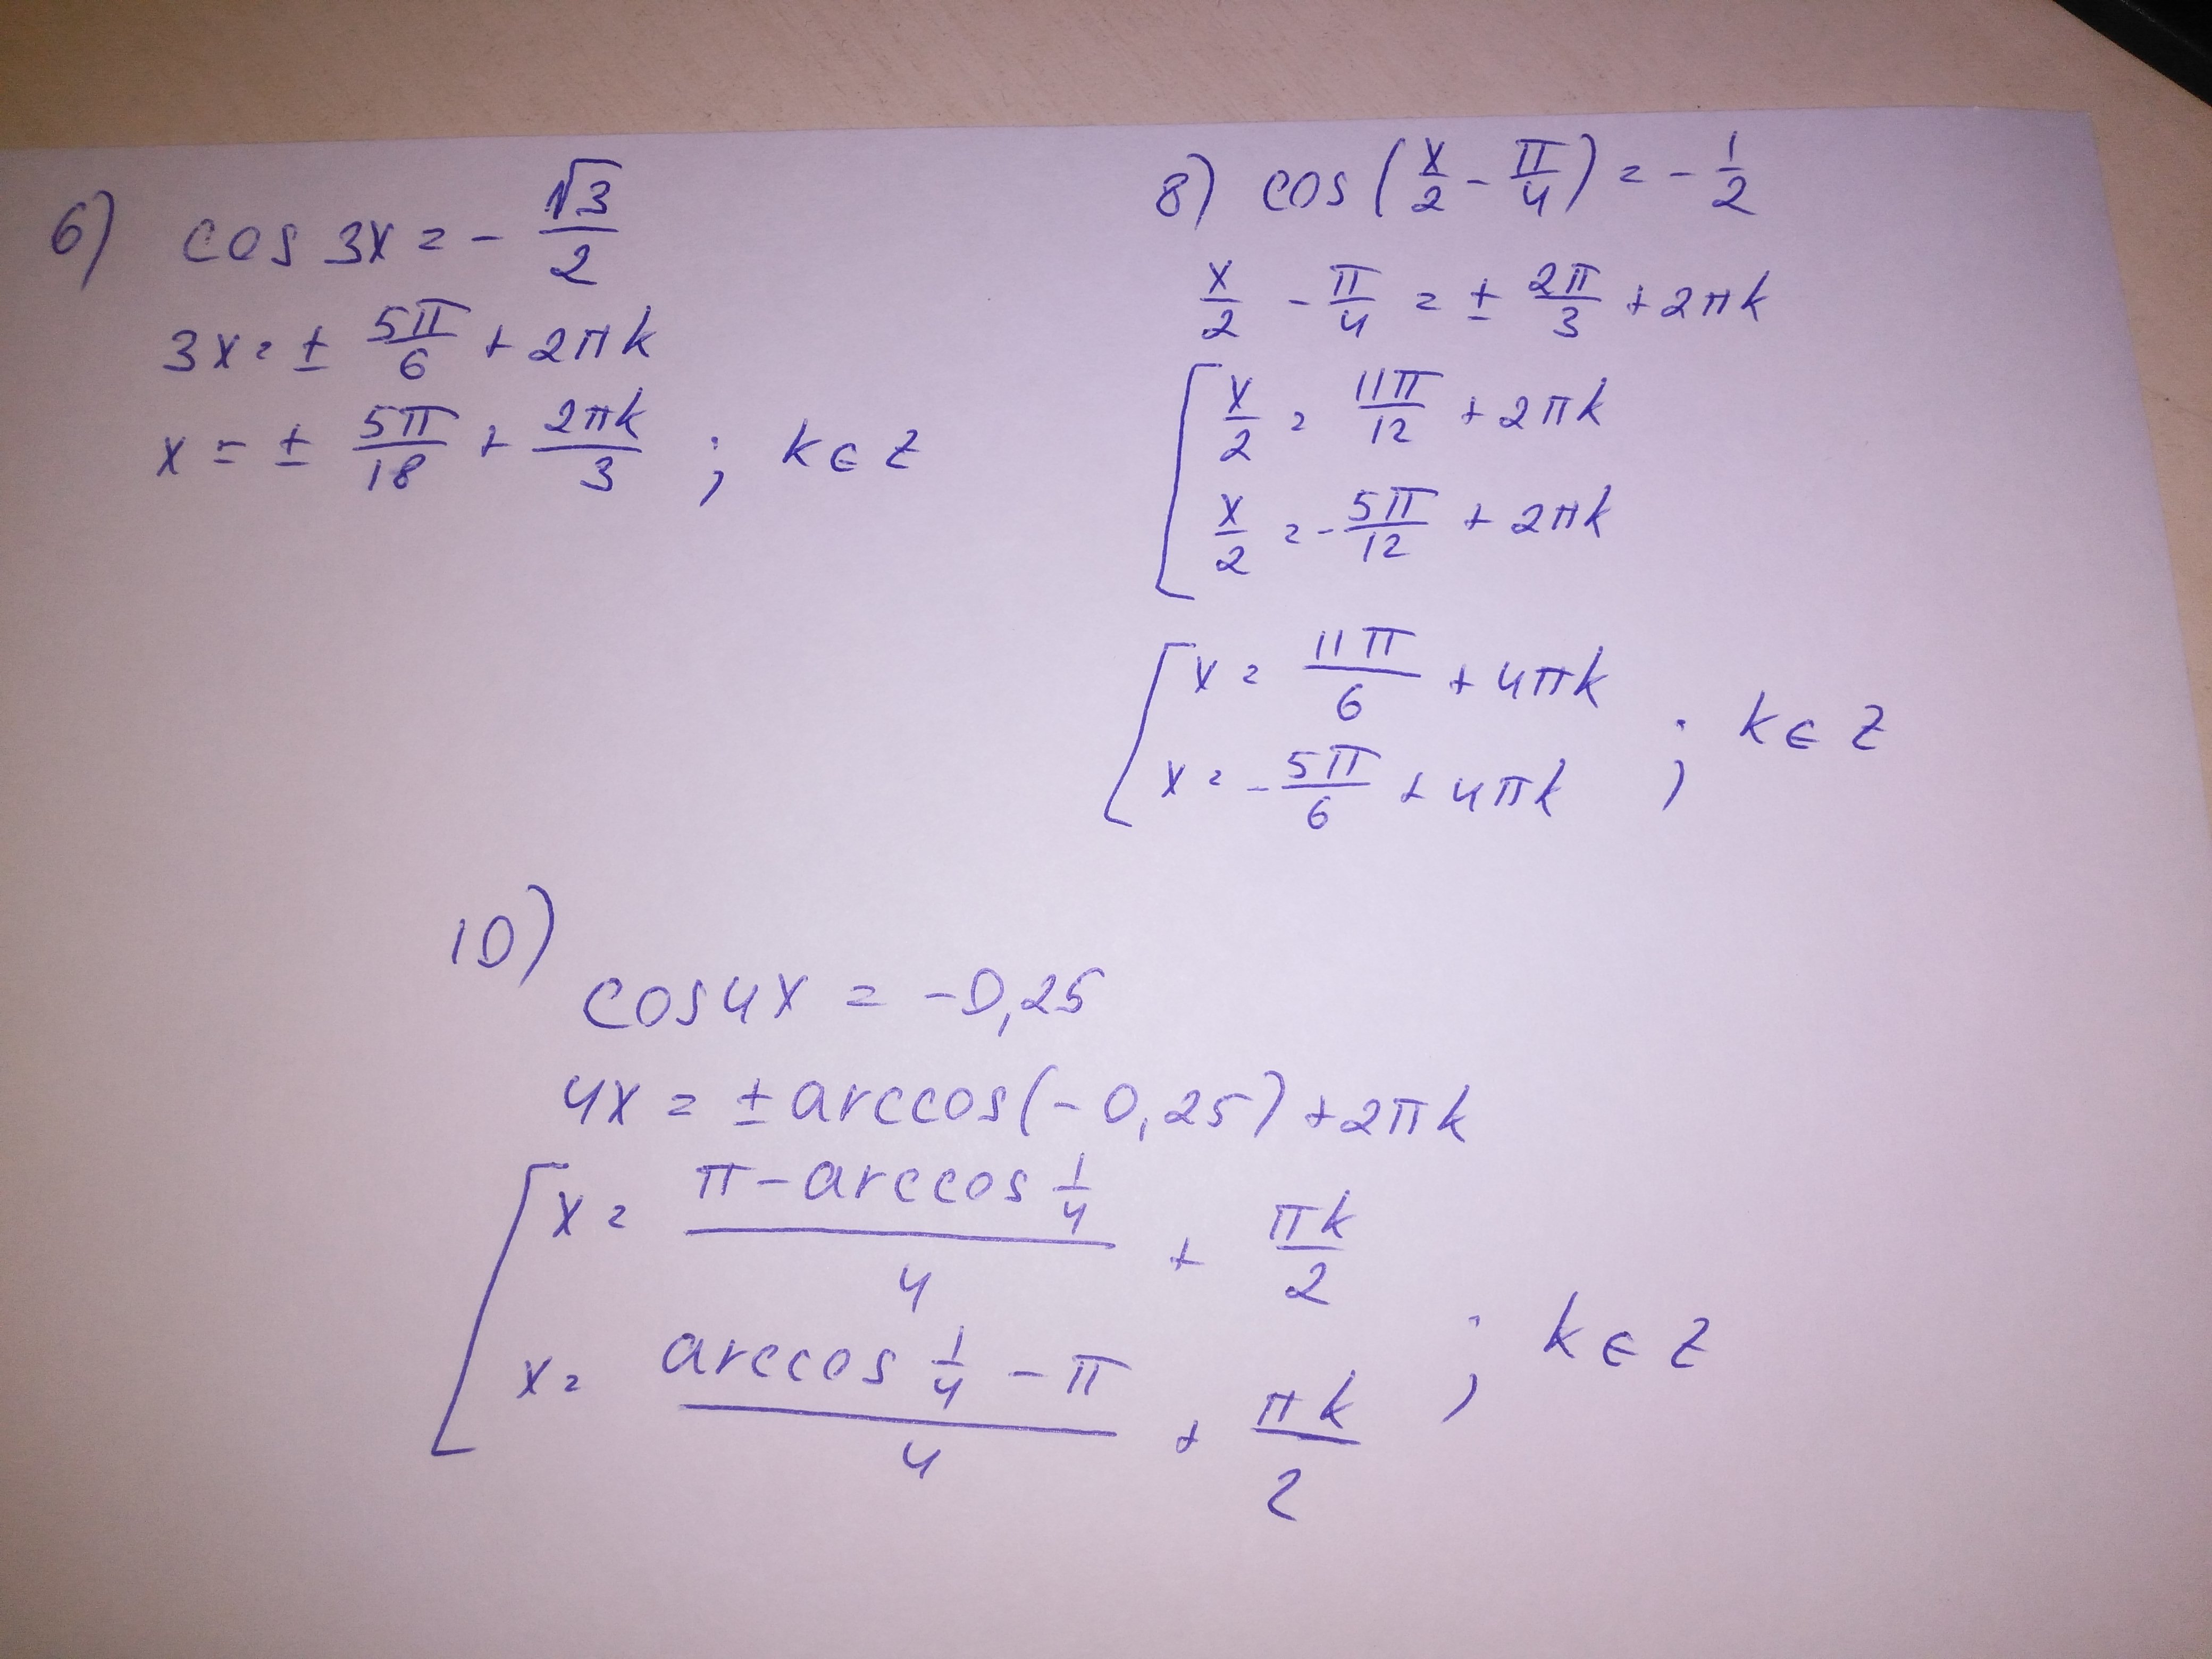 6) cos 3x = - √3/2
3x = ± 5π/6 + 2πk
x = ± 5π/18 + 2πk/3 ; k ∈ Z
8) cos (x/2 - π/4) = - 1/2
x/2 - π/4 = ± 2π/3 + 2πk
[ x/2 = 11π/12 + 2πk
x/2 = - 5π/12 + 2πk
[ x = 11π/6 + 4πk
x = - 5π/6 + 4πk ; k ∈ Z
10)
cos 4x = -0,25
4x = ± arccos(-0,25) + 2πk
[ x = (π - arccos 1/4)/4 + πk/2
x = (arccos 1/4 - π)/4 + πk/2 ; k ∈ Z